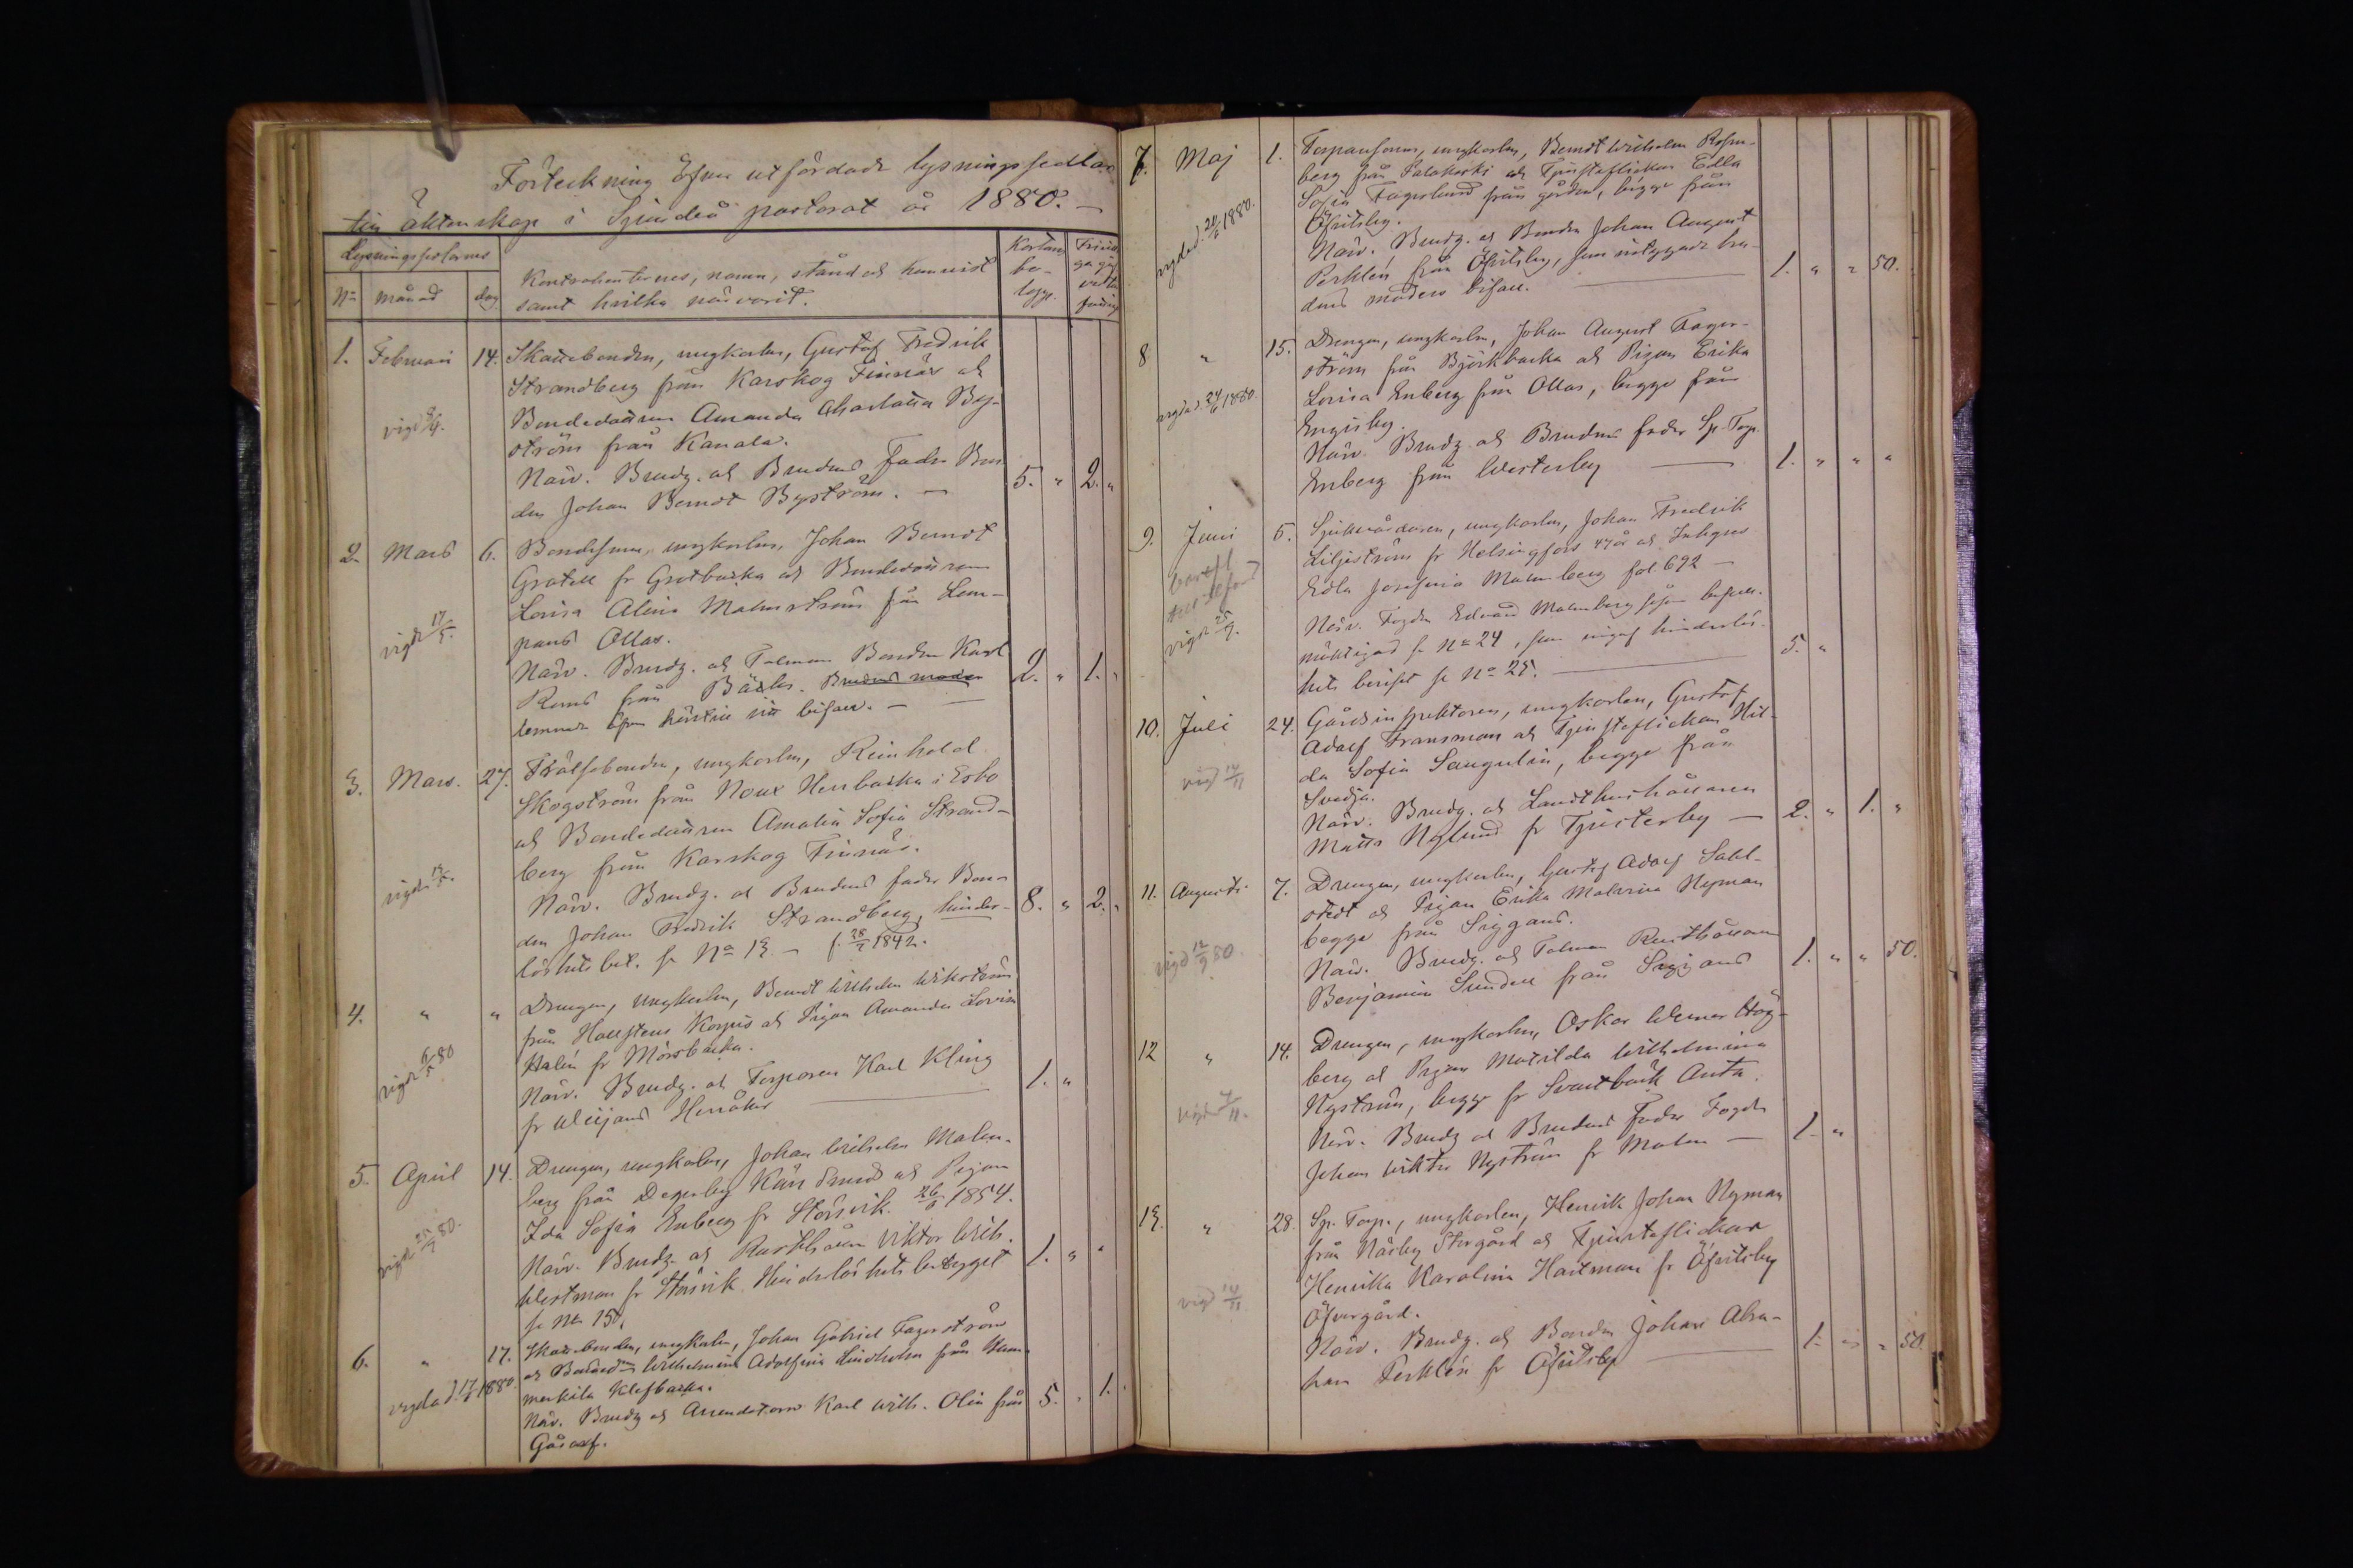 Förteckning Öfver utfärdade lysningssedlar
till äktenskap i Sjundeå pastorat år 1880. —
Lysningssedlarnes
No månad dag
Kontrahenternes, namn, stånd och hemvist
samt hvilka närvarit.
be-
lopp.
1. Februari 14. Skattebonden, ungkarlen, Gustaf Fredrik
Strandberg från Karskog Finnäs och
Bondedottren Amanda Charlotta By-
vigd 8/4.
ström från Kanala.
Närv. Brudg. och Brudens Fader Bon-
den Johan Berndt Byström. — 5. " 2. "
2. Mars 6. Bondesonen, ungkarlen, Johan Berndt
Gratell fr Grotbacka och Bondedottren
Lovisa Alina Malmström från Lem-
vigde 17/5.
pans Ollas.
Närv. Brudg. och Talman Bonden Karl
från Bäcks. Brudens moder 2. " 1. "
lemnade
bifall. —
3. Mars. 27. Frälsebonden, ungkarlen, Reinhold
Skogström från Noux Herrbacka i Esbo
och Bondedottren Amalia Sofia Strand-
berg från Karskog Finnäs.
Närv. Brudg. och Brudens fader Bon-
den Johan Fredrik Strandberg, hinder- 8. " 2. "
löshets bet. se No 13. — f. 28/7 1842.
4. " " Drengen, ungkarlen, Berndt Wilhelm Wikström
från Hallstens Korpis och Pigan Amanda Lovisa
Halén fr Mörsbacka.
vigde 6/5 80
Närv. Brudg. och Torparen Karl Kling
fr Herråker — 1. "
5. April 14. Drengen, ungkarlen, Johan Wilhelm Malm-
berg från Degerby och Pigan
Ida Sofia Enberg fr Störsvik. 26/8 1854.
Närv. Brudg. och Rusthållaren Viktor Wilh.
Westman fr Störsvik. Hinderlöshets betyget 1. " "
se No 15.
6. " 17. Skattebonden, ungkarlen, Johan Gabriel Fagerström
och Wilhelmina Adolfina Lindholm från Hum-
vigda d. 17/5 1880.
merkila Klefbacka.
Närv. Brudg och Arrendatorn Karl Wilh. Olin från 5. " 1. "
7. Maj 1. Torparsonen, ungkarlen, Berndt Wilhelm Rosen-
berg från Palokoski och Tjensteflickan Edla
Sofia Fagerlund från gården, begge från
Öfvitsby.
Närv. Brudg. och Bonden Johan August
Perklén från Öfvitsby, som intygade bru-
dens moders bifall. — 1. " " 50.
8 " 15. Drengen, ungkarlen, Johan August Fager-
ström från Björkbacka och Pigan Erika
Lovisa Enberg från Ollas, begge från
vigda d. 24/6 1880.
Engisby.
Närv. Brudg. och Brudens fader Sp. Torp.
Enberg från Westerby — 1. " " "
9. Juni 5. Sjukvårdaren, ungkarlen, Johan Fredrik
Liljeström fr Helsingfors 47 år och Inhyses
Edla Josefina Malmberg fol. 692 —
Närv. Fogden Edvard Malmberg såsom befull-
mäktigad se No 24, som ingaf hinderlös-
vigde 25/7.
hets beviset se No 25. — 5. "
10. Juli 24. Gårdsinspektoren, ungkarlen, Gustaf
Adolf Fransman och Tjensteflickan Hil-
da Sofia Sangulin, begge från
vigd 14/11
Svedja.
Närv. Brudg. och Landthushållaren
Matts Nylund fr Tjusterby — 2. " 1. "
11. Augusti 7. Drengen, ungkarlen, Gustaf Adolf Sahl-
stedt och Pigan Erika Malvina Nyman
begge från Siggans.
vigd 12/9 80.
Närv. Brudg. och Talman Rusthållaren
Benjamin Sundell från Siggans 1. " " 50.
12 " 14. Drengen, ungkarlen, Oskar Werner Hög-
berg och Pigan Matilda Wilhelmina
Nyström, begge fr Svartbäck Antu.
vigd 7/11.
Närv. Brudg och Brudens Fader Fogden
Johan Viktor Nyström fr Malm — 1. "
13. " 28. Sp. Torp., ungkarlen, Henrik Johan Nyman
från Näsby Storgård och Tjensteflickan
Henrika Karolina Hartman fr Öfvitsby
Öfvergård.
vigd 14/11
Närv. Brudg. och Bonden Johan Abra-
ham Perklén fr Öfvitsby — 1. " " 50.